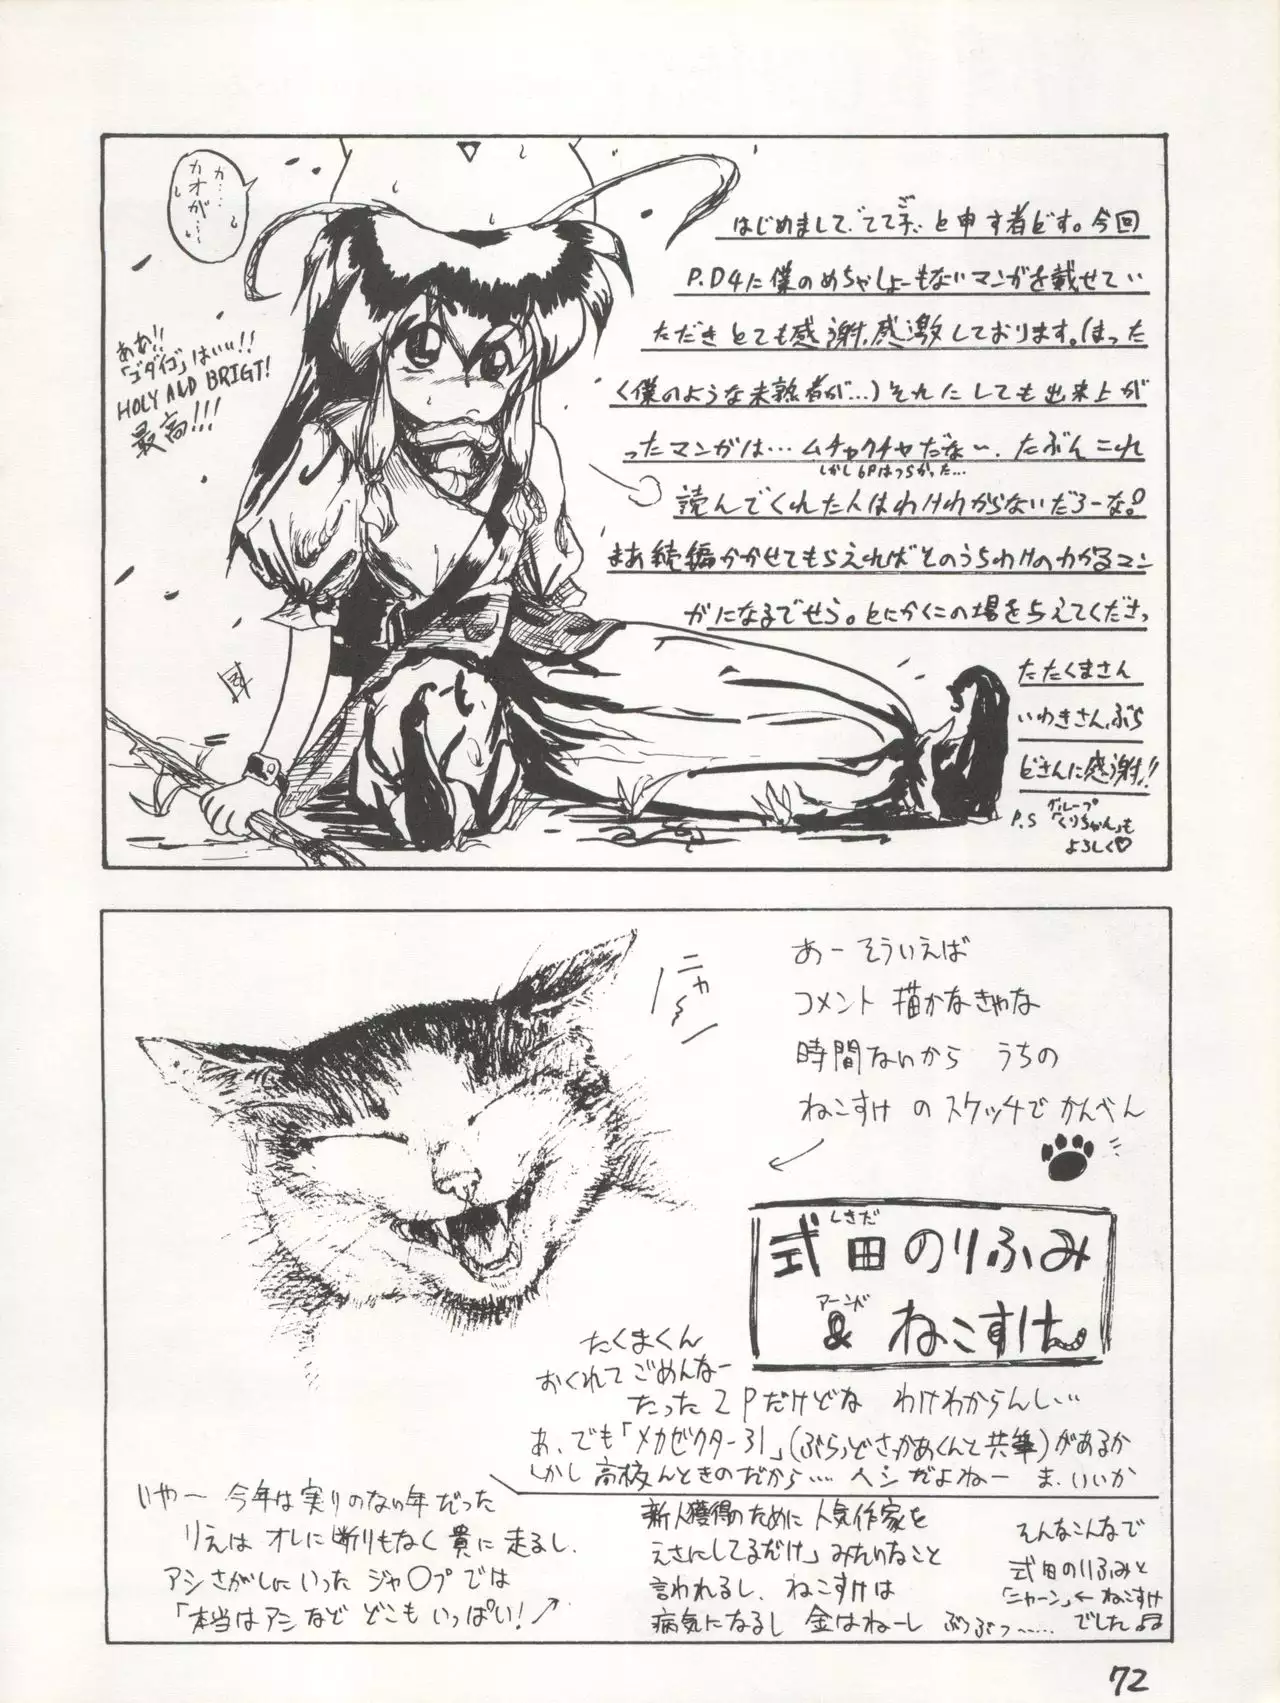 カ…
カオが…
ああ!!
「ゴダイゴ」はいい!!
HOLY AND BRIGT!
最高!!!
はじめまして、てて子゛と申す者どす。今回
P.D4に僕のめちゃしょーもないマンガを載せてい
ただきとても感謝、感激しております。(まった
く僕のような未熟者が…)それにしても出来上が
ったマンガは…ムチャクチャだな〜。たぶんこれ
しかし6Pはつらかった…
読んでくれた人はわけわからないだろーな。
まあ続編かかせてもらえればそのうちわけのわかるマン
がになるでせう。とにかくこの場を与えてくださっ
たたくまさん
いわきさん、ぶら
どさんに感謝!!
P.S グループ
「くりちゃん」も
よろしく♡
ニャ〜ン
あー そういえば
コメント 描かなきゃな
時間ないから うちの
ねこすけ の スケッチで かんべん
しきだ
式田のりふみ
アーンド
& ねこすけ
たくまくん
おくれて ごめんなー
たった 2Pだけどな わけわからんし…
あ、でも「メカゼクター31」(ぶらっどさっかあくんと共筆)があるか
しかし 高校んときのだから…… ヘンだよねー ま、いいか
いや〜 今年は実りのない年だった
りえは オレに断りもなく 貴に 走るし、
アシさがしにいった ジャ〇プでは
「本当はアシなど どこも いっぱい!
新人獲得のために 人気作家を
えさにしてるだけ」みたいなこと
言われるし、ねこすけは
病気になるし 金はねーし ぶつぶつ……
そんなこんなで
式田のりふみと
「ニャーン」← ねこすけ
でした♫
72